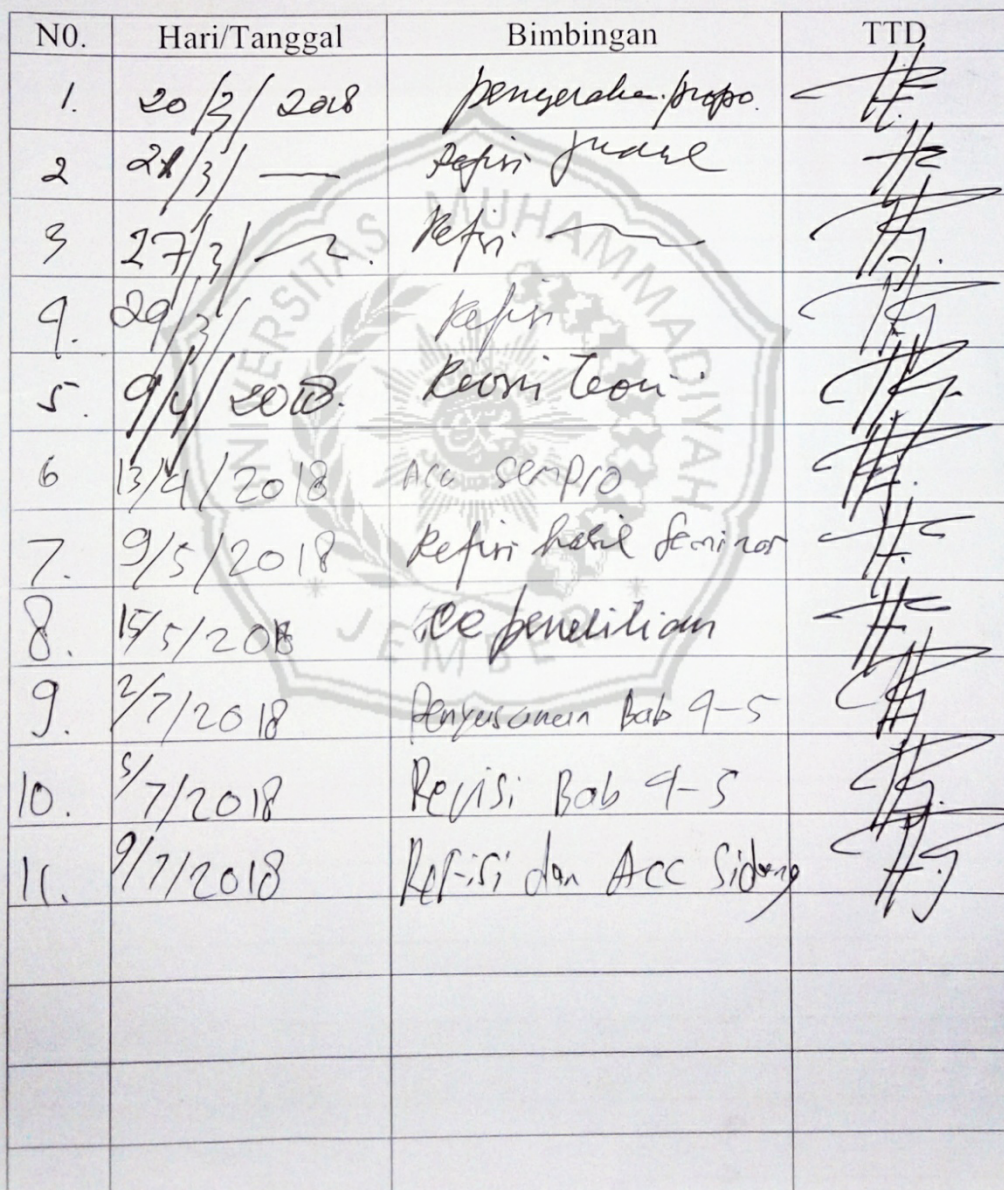 N0. Hari/Tanggal Bimbingan TTD
1. 20/3/2018 penyerahan propo.
2 21/3/ — Refisi Judul
3 27/3/ — Refisi —
4. 29/3/ Refisi
5. 9/4/2018. Revisi Teori
6 13/4/2018 Acc sempro
7. 9/5/2018 Refisi hasil Seminar
8. 15/5/2018 penelitian
9. 2/7/2018 Penyusunan Bab 4-5
10. 5/7/2018 Revisi Bab 4-5
11. 9/7/2018 Refisi dan Acc Sidang
UNIVERSITAS MUHAMMADIYAH
* JEMBER *